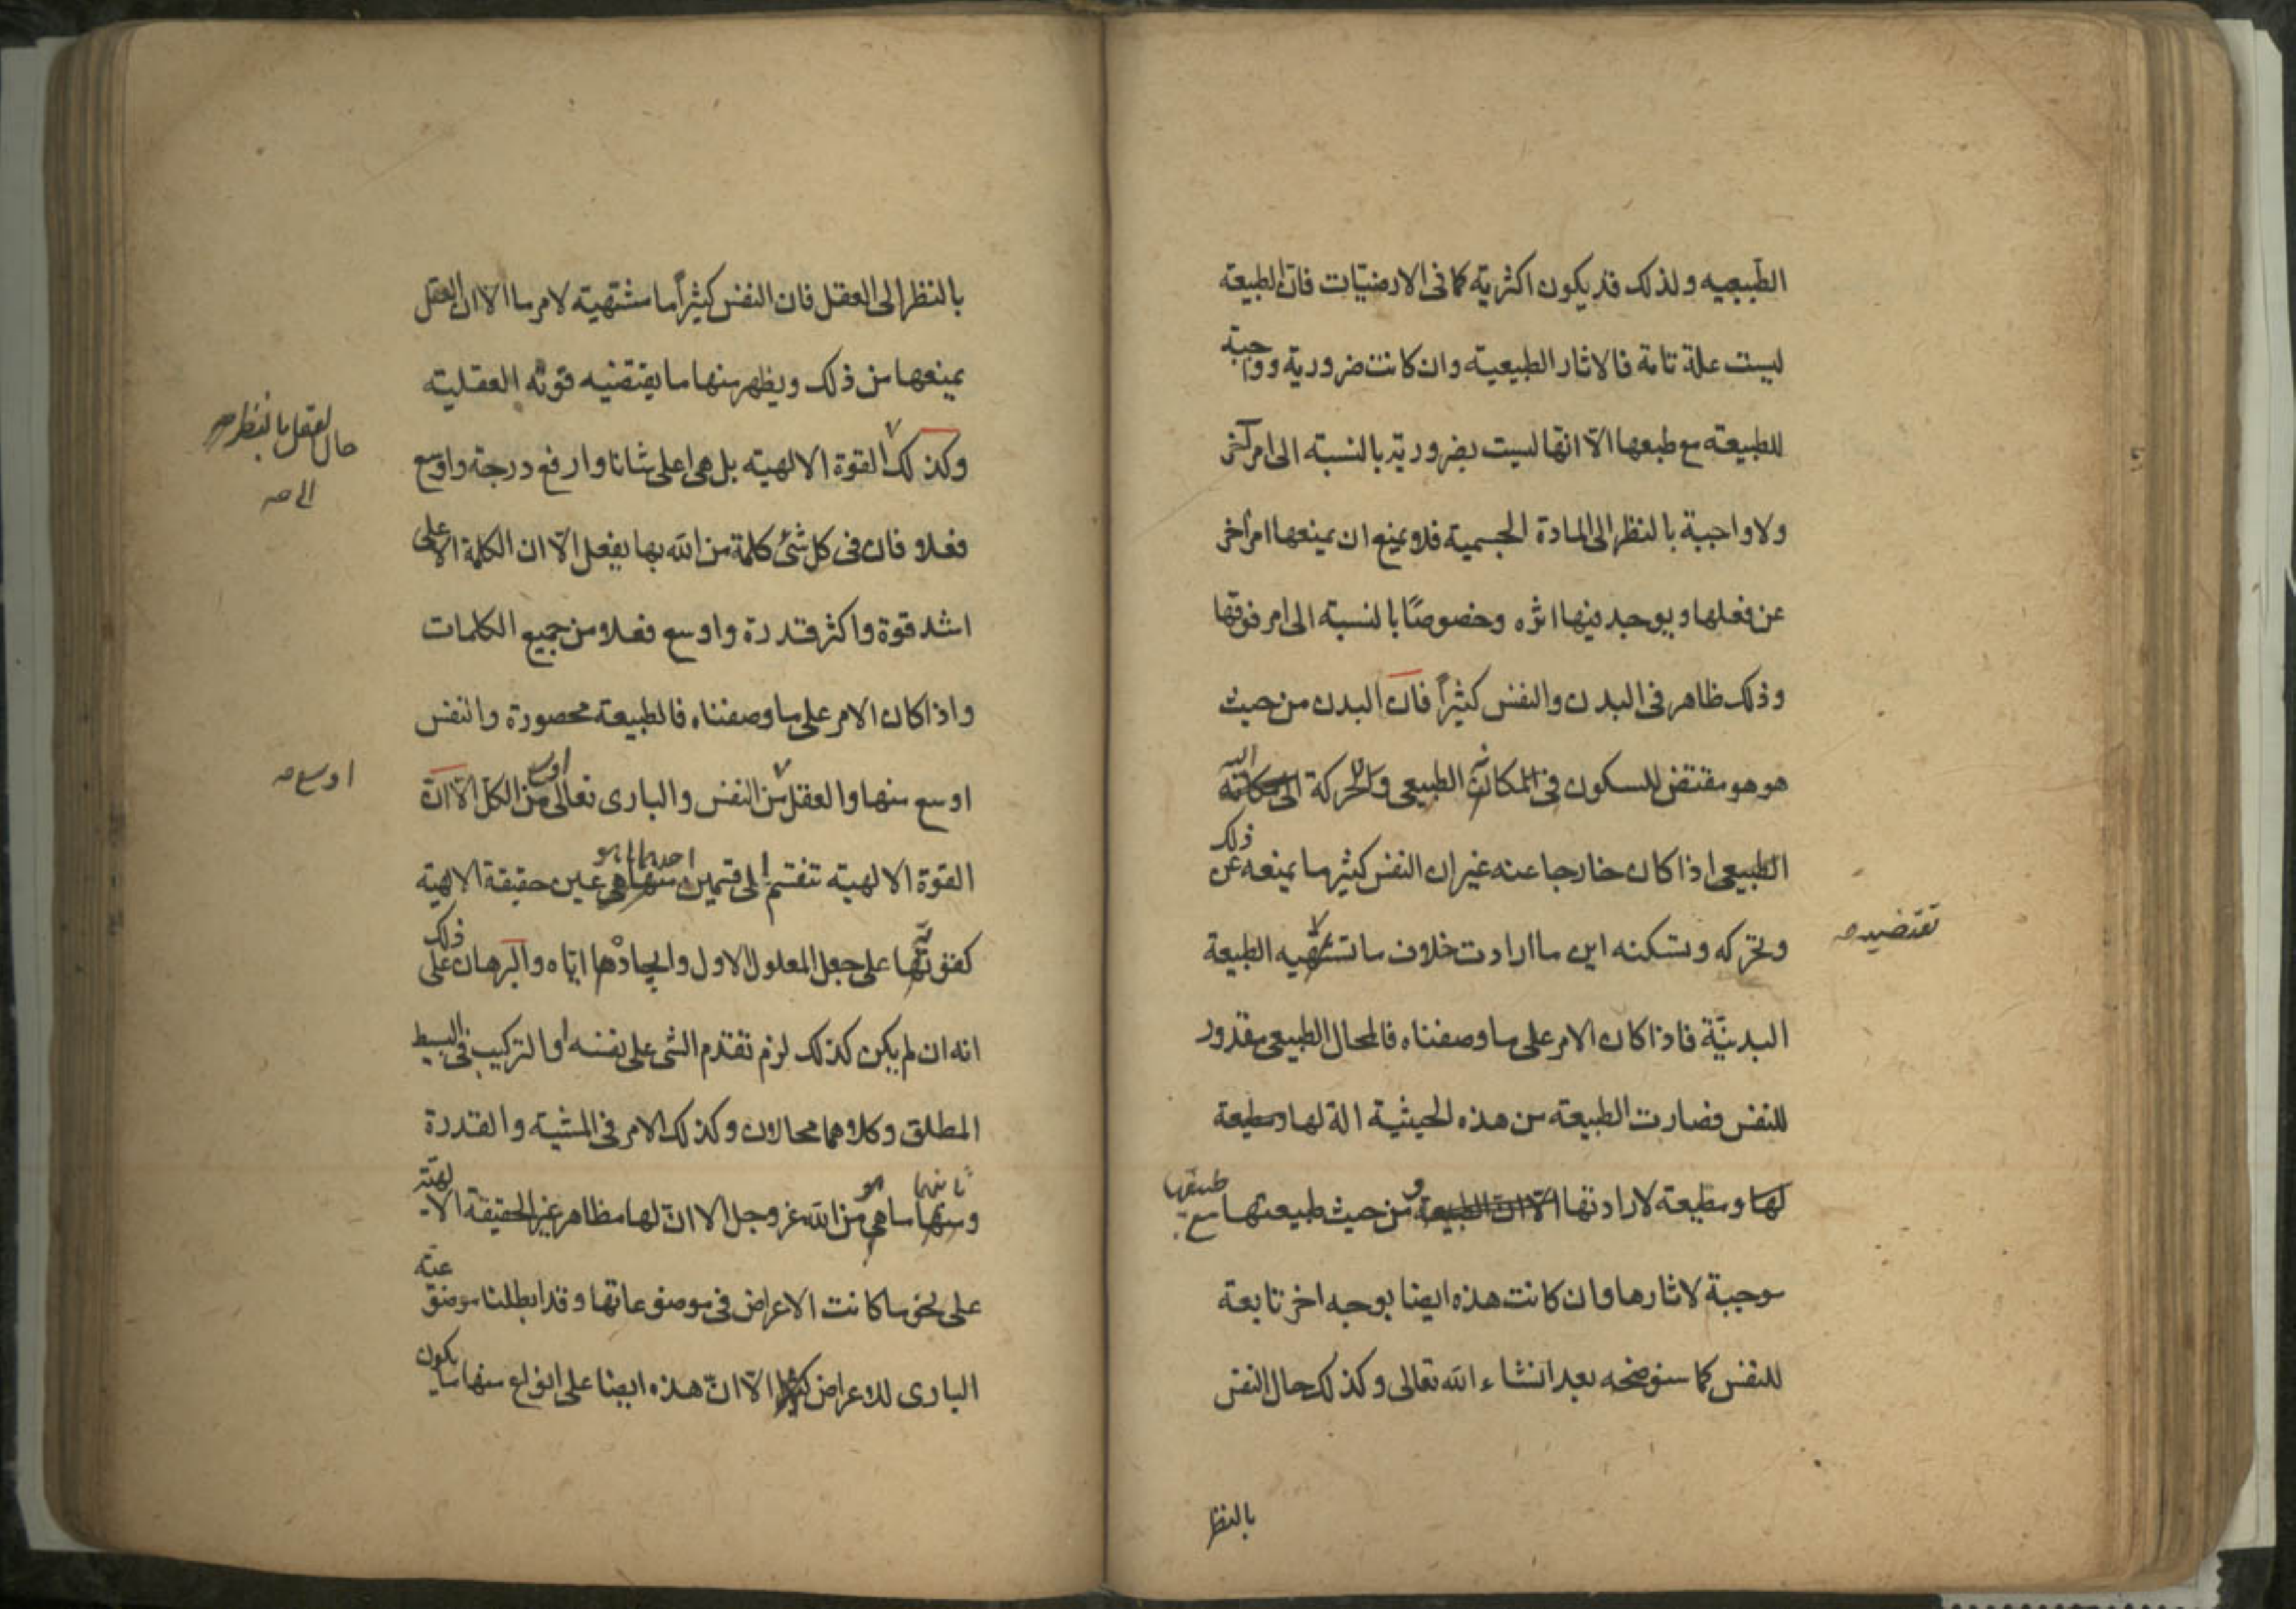 الطبيعيه ولذلك قد يكون اكثرية كما فى الارضيّات فانّ الطبيعة
ليست علة تامة فالاثار الطبيعية وان كانت ضرورية وواجبة
للطبيعة مع طبعها الّا انّها ليست بضرورية بالنسبة الى امر آخر
ولا واجبة بالنظر الى المادة الجسمية فلا يمنع ان يمنعها امر آخر
عن فعلها ويوجد فيها اثره وخصوصًا بالنسبة الى امر فوقها
وذلك ظاهر فى البدن والنفس كثيراً فانّ البدن من حيث
هو هو مقتض للسكون فى المكان الطبيعى والحركة اليه
الطبيعى اذا كان خارجا عنه غير ان النفس كثيرما يمنعه عن ذلك
وتحركه وتسكنه اين ما ارادت خلاف ما تشتهيه الطبيعة
تقتضيه صح
البدنيّة فاذا كان الامر على ما وصفناه فالمحال الطبيعى مقدور
للنفس فصارت الطبيعة من هذه الحيثية الة لها ومطيعة
لها ومطيعة لارادتها الّا انّ الطبيعة و من حيث طبيعتها مع
موجبة لاثارها وان كانت هذه ايضا بوجه اخر تابعة
للنفس كما سنوضحه بعد انشاء الله تعالى وكذلك حال النفس
بالنظر
بالنظر الى العقل فان النفس كثيراً ما مشتهية لامر ما الا ان العقل
يمنعها من ذلك ويظهر منها ما يقتضيه قوته العقلية
وكذلك القوة الالهية بل هى اعلى شانا وارفع درجة واوسع
حال العقل بالنظر صح
الى صح
فعلا فان فى كل شئ كلمة من الله بها يفعل الّا ان الكلمة الاعلى
اشد قوة واكثر قدرة واوسع فعلا من جميع الكلمات
واذا كان الامر على ما وصفناه فالطبيعة محصورة والنفس
اوسع منها والعقل من النفس والبارى تعالى اوسع من الكل الّا انّ
اوسع صح
القوة الالهية تنقسم الى قسمين احدهما هو منها هى عين حقيقة الالهية
كقوتها على جعل المعلول الاول وايجادها ايّاه والبرهان على ذلك
انه ان لم يكن كذلك لزم تقدم الشى على نفسه او التركيب فى البسيط
المطلق وكلاهما محالان وكذلك الامر فى المشية والقدرة
ثانيهما هو ومنها ما هى من الله عز وجل الا انّ لها مظاهر غير الحقيقة الالهيّة
على نحو ما كانت الاعراض فى موضوعاتها وقد ابطلنا موضوعية
البارى للاعراض الّا انّ هذه ايضا على انواع منها ما يكون